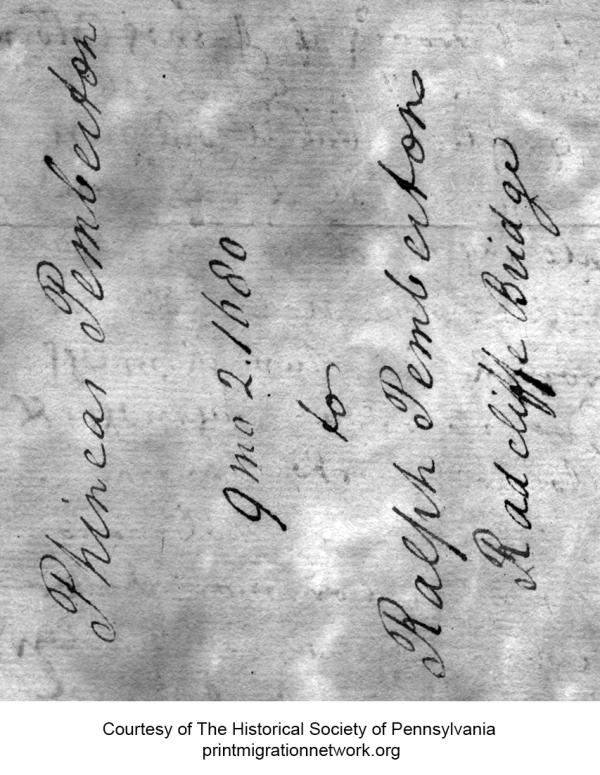 Phineas Pemberton
9 mo 2. 1680
to
Ralph Pemberton
Radcliffe Bridge
Courtesy of The Historical Society of Pennsylvania
printmigrationnetwork.org